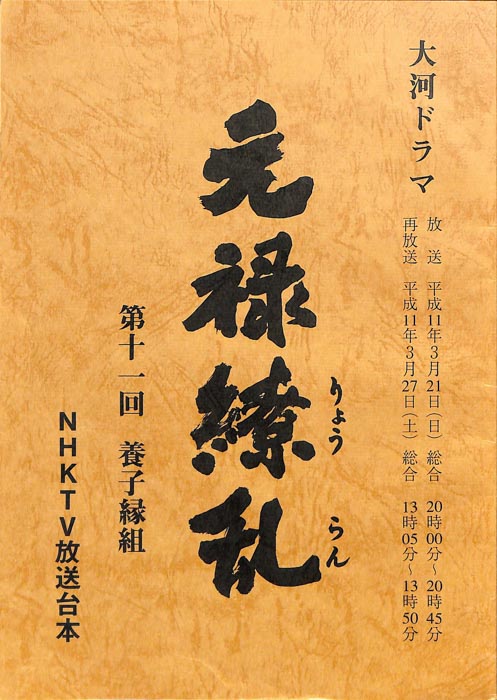 大河ドラマ
放送 平成11年3月21日(日) 総合 20時00分～20時45分
再放送 平成11年3月27日(土) 総合 13時05分～13時50分
元禄繚乱
りょう らん
第十一回 養子縁組
NHKTV放送台本